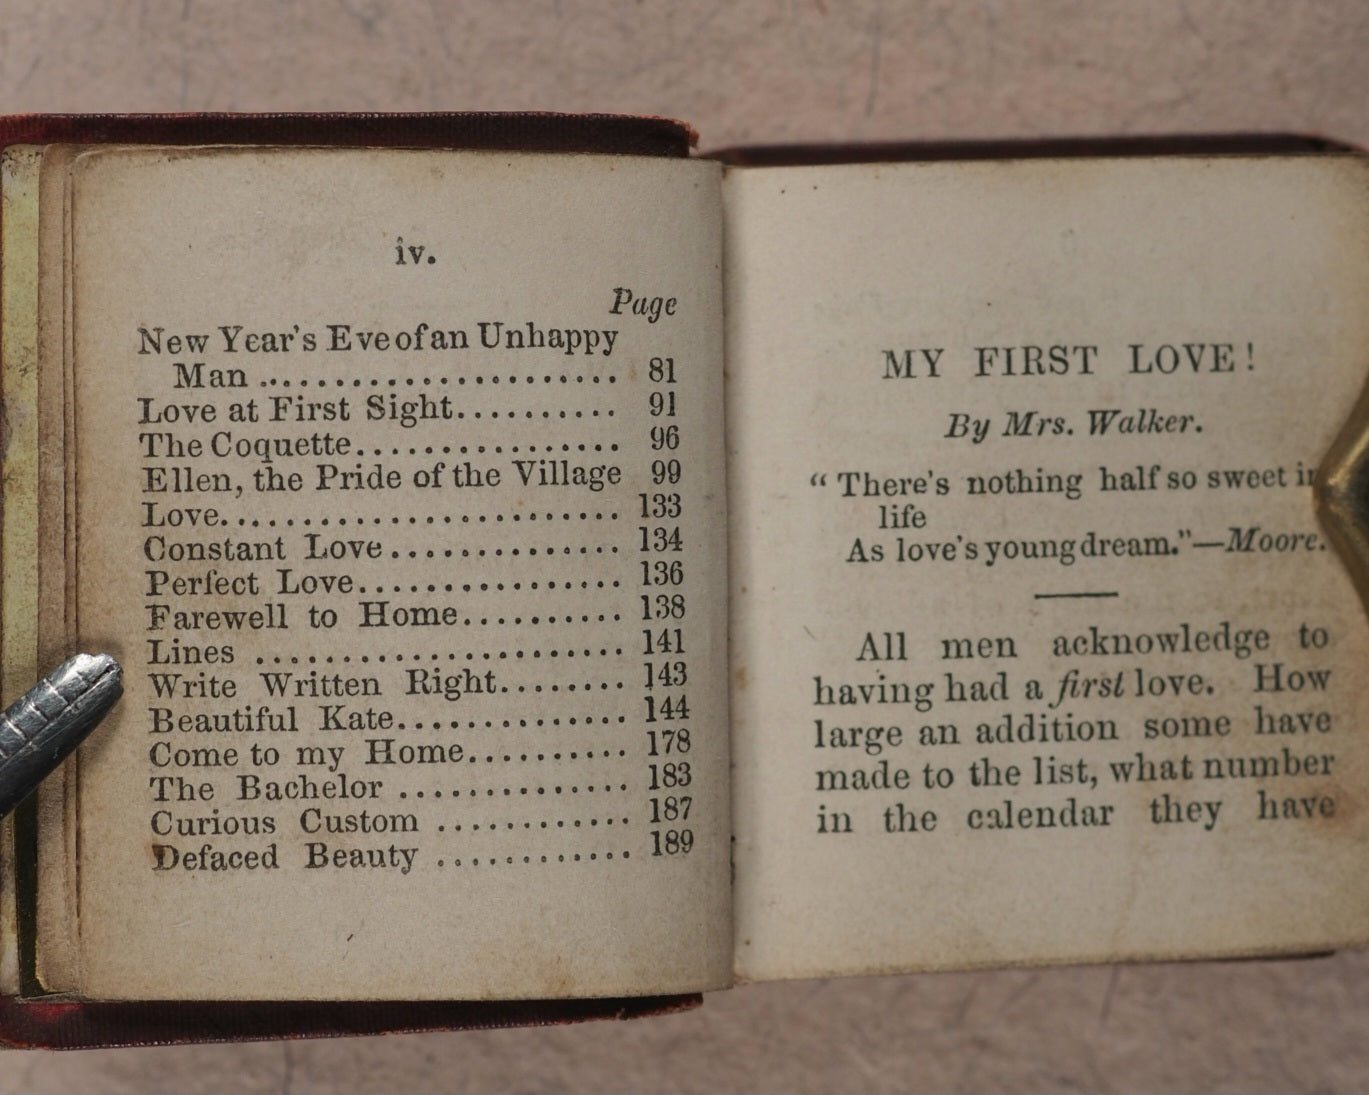 iv.
Page
New Year's Eve of an Unhappy
Man ........................ 81
Love at First Sight.......... 91
The Coquette................ 96
Ellen, the Pride of the Village 99
Love........................ 133
Constant Love.............. 134
Perfect Love................ 136
Farewell to Home.......... 138
Lines ...................... 141
Write Written Right........ 143
Beautiful Kate.............. 144
Come to my Home.......... 178
The Bachelor .............. 183
Curious Custom ............ 187
Defaced Beauty ............ 189
MY FIRST LOVE!
By Mrs. Walker.
“ There's nothing half so sweet in
life
As love's young dream.”—Moore.
All men acknowledge to
having had a first love. How
large an addition some have
made to the list, what number
in the calendar they have